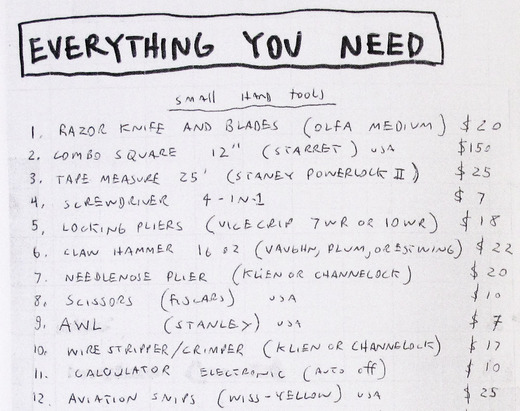 EVERYTHING YOU NEED
small HAND tools
1. RAZOR KNIFE AND BLADES (OLFA MEDIUM) $20
2. COMBO SQUARE 12" (STARRET) USA $150
3. TAPE MEASURE 25' (STANEY POWERLOCK II) $25
4. SCREWDRIVER 4-IN-1 $7
5. LOCKING PLIERS (VICEGRIP 7WR OR 10WR) $18
6. CLAW HAMMER 16 OZ (VAUGHN, PLUM, OR ESTWING) $22
7. NEEDLENOSE PLIER (KLIEN OR CHANNELOCK) $20
8. SCISSORS (FISCARS) USA $10
9. AWL (STANLEY) USA $7
10. WIRE STRIPPER/CRIMPER (KLIEN OR CHANNELOCK) $17
11. CALCULATOR ELECTRONIC (AUTO off) $10
12. AVIATION SNIPS (WISS-YELLOW) USA $25